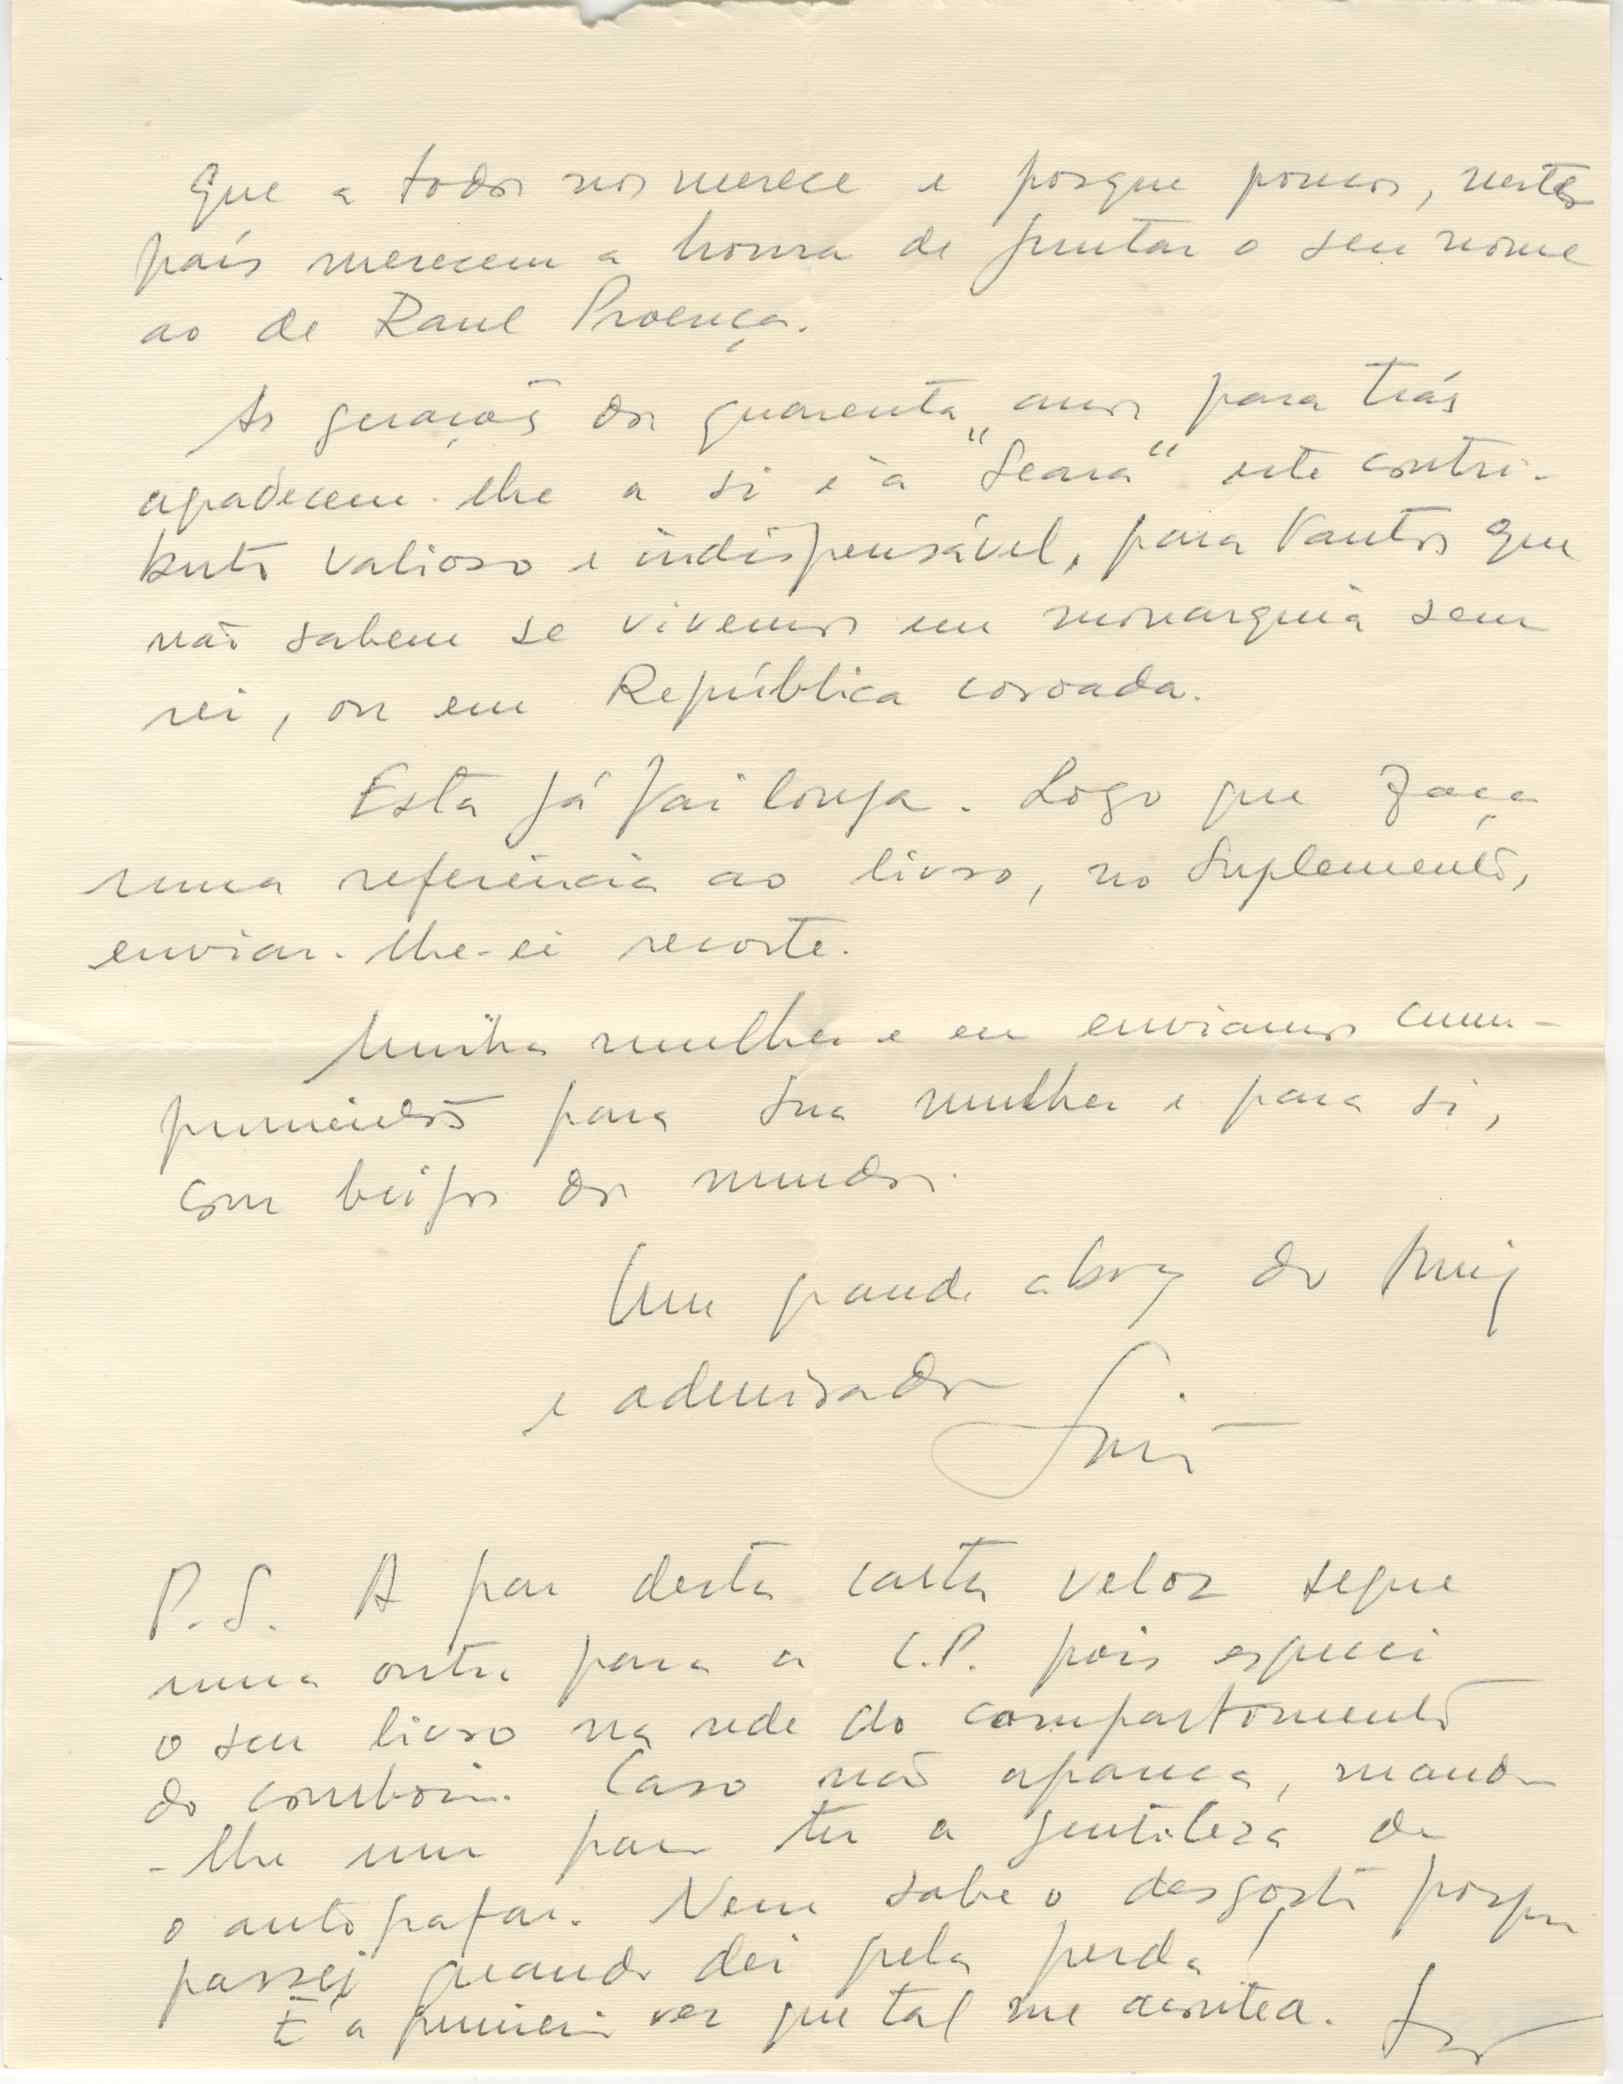 que a todos nos merece e porque poucos, neste
país merecem a honra de juntar o seu nome
ao de Raul Proença.
As gerações dos quarenta anos para trás
agradecem-lhe a si e à "Seara" este contri-
buto valioso e indispensável, para tantos que
não sabem se vivemos em monarquia sem
rei, ou em República coroada.
Esta já vai longa. Logo que faça
uma referência ao livro, no Suplemento,
enviar-lhe-ei recorte.
Minha mulher e eu enviamos cum-
primentos para sua mulher e para si,
com beijos dos miudos.
Um grande abraço do Amigo
e admirador
P.S. A par desta carta veloz segue
uma outra para a C.P. pois esqueci
o seu livro na rede do compartimento
do comboio. Caso não apareça, mando-
-lhe um para ter a gentileza de
o autografar. Nem sabe o desgosto porque
passei quando dei pela perda!
É a primeira vez que tal me acontece.